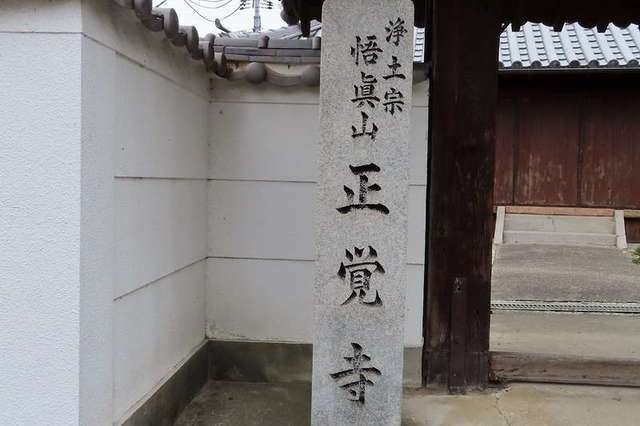 浄土宗
悟眞山
正覚寺